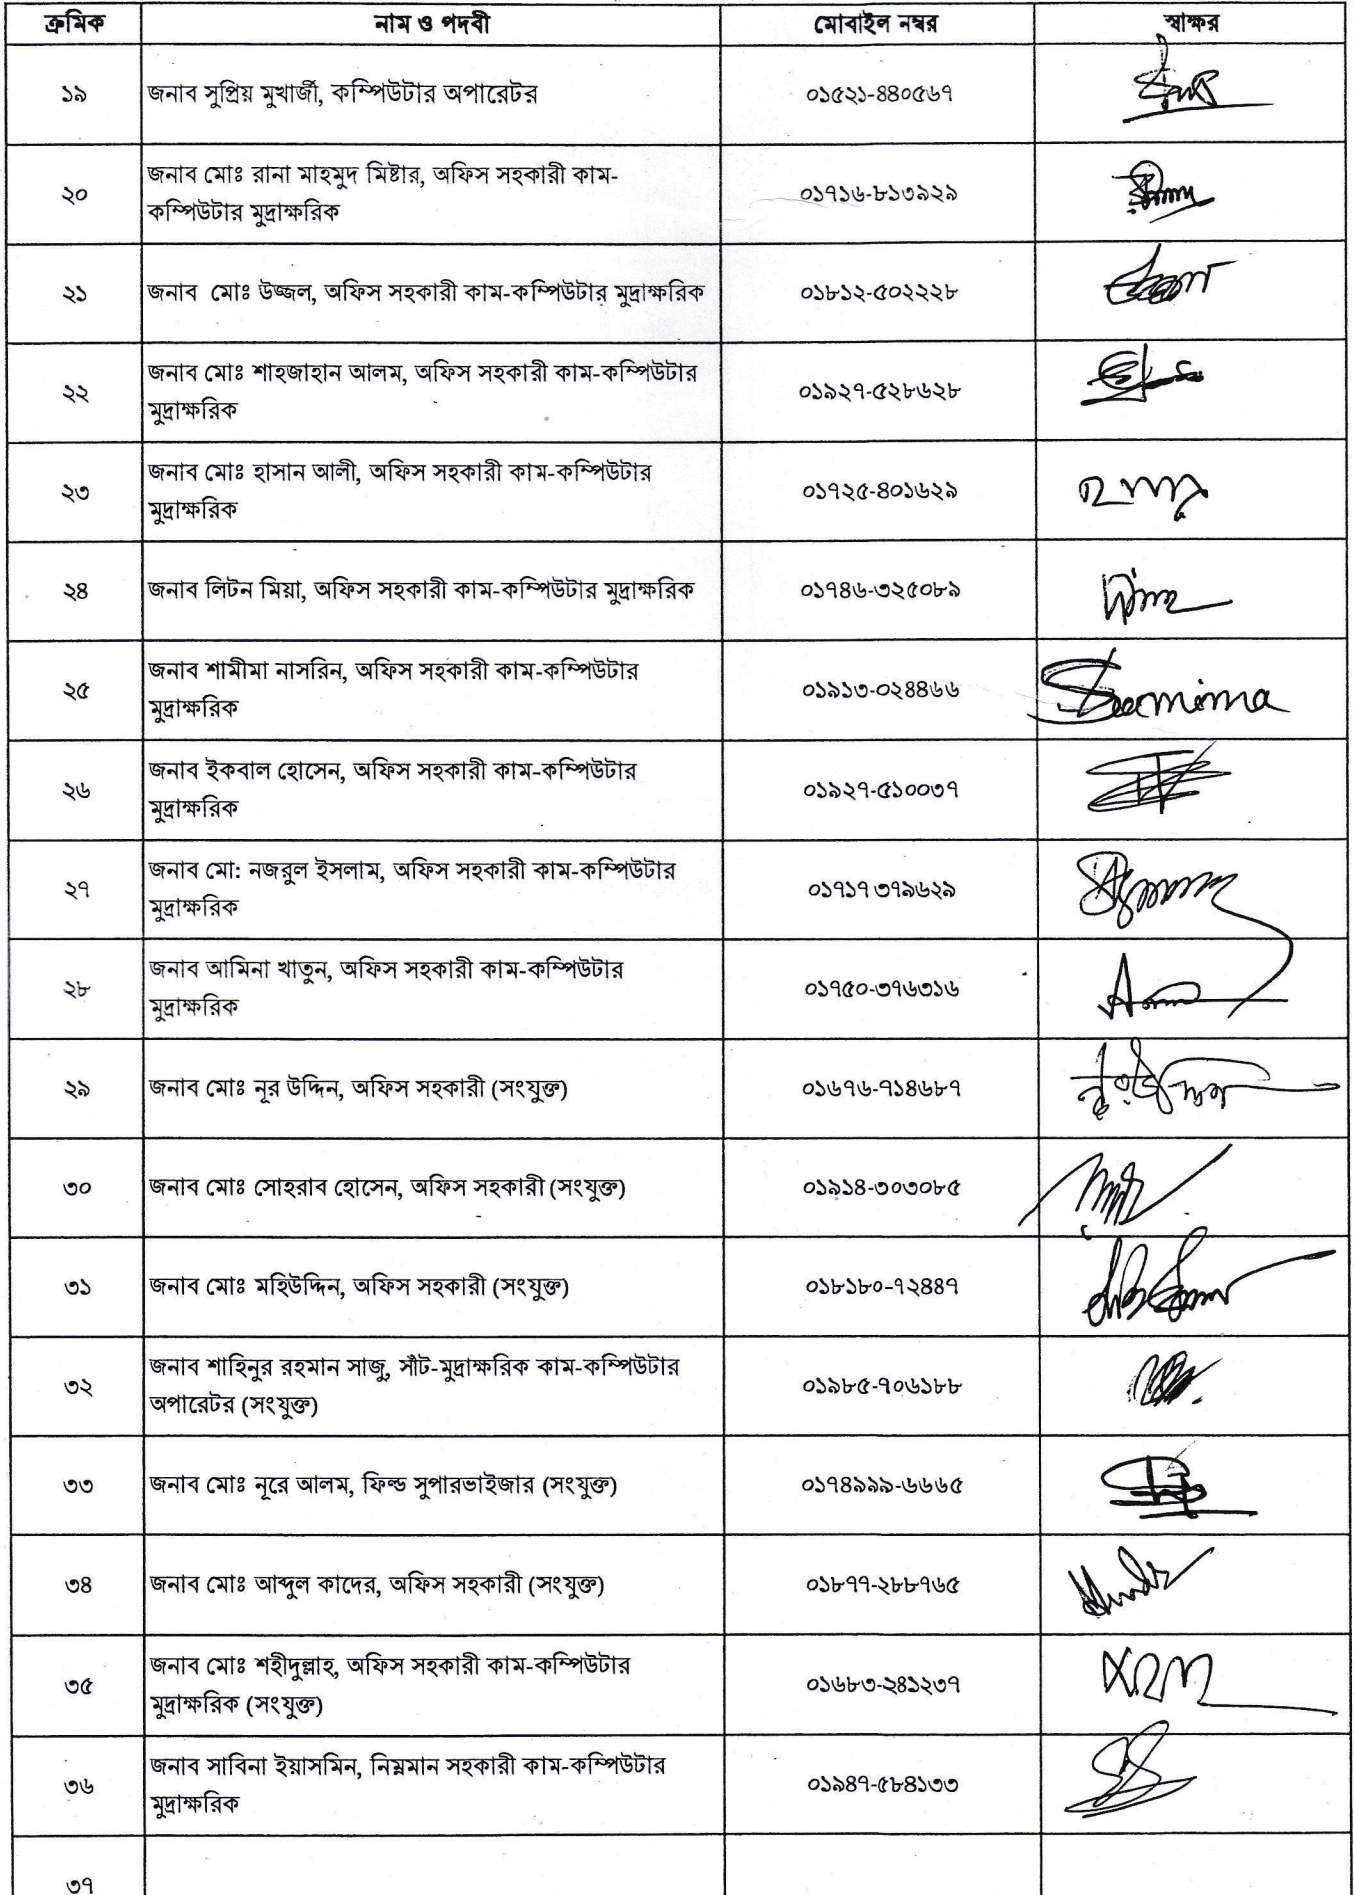 ক্রমিক নাম ও পদবী মোবাইল নম্বর স্বাক্ষর
১৯ জনাব সুপ্রিয় মুখার্জী, কম্পিউটার অপারেটর ০১৫২১-৪৪০৫৬৭
জনাব মোঃ রানা মাহমুদ মিষ্টার, অফিস সহকারী কাম-
২০ কম্পিউটার মুদ্রাক্ষরিক ০১৭১৬-৮১৩৯২৯
২১ জনাব মোঃ উজ্জল, অফিস সহকারী কাম-কম্পিউটার মুদ্রাক্ষরিক ০১৮১২-৫০২২২৮
জনাব মোঃ শাহজাহান আলম, অফিস সহকারী কাম-কম্পিউটার
২২ মুদ্রাক্ষরিক ০১৯২৭-৫২৮৬২৮
জনাব মোঃ হাসান আলী, অফিস সহকারী কাম-কম্পিউটার
২৩ মুদ্রাক্ষরিক ০১৭২৫-৪০১৬২৯
২৪ জনাব লিটন মিয়া, অফিস সহকারী কাম-কম্পিউটার মুদ্রাক্ষরিক ০১৭৪৬-৩২৫০৮৯
জনাব শামীমা নাসরিন, অফিস সহকারী কাম-কম্পিউটার
২৫ মুদ্রাক্ষরিক ০১৯১৩-০২৪৪৬৬
জনাব ইকবাল হোসেন, অফিস সহকারী কাম-কম্পিউটার
২৬ মুদ্রাক্ষরিক ০১৯২৭-৫১০০৩৭
জনাব মো: নজরুল ইসলাম, অফিস সহকারী কাম-কম্পিউটার
২৭ মুদ্রাক্ষরিক ০১৭১৭ ৩৭৯৬২৯
জনাব আমিনা খাতুন, অফিস সহকারী কাম-কম্পিউটার
২৮ মুদ্রাক্ষরিক ০১৭৫০-৩৭৬৩১৬
২৯ জনাব মোঃ নূর উদ্দিন, অফিস সহকারী (সংযুক্ত) ০১৬৭৬-৭১৪৬৮৭
৩০ জনাব মোঃ সোহরাব হোসেন, অফিস সহকারী (সংযুক্ত) ০১৯১৪-৩০৩০৮৫
৩১ জনাব মোঃ মহিউদ্দিন, অফিস সহকারী (সংযুক্ত) ০১৮১৮০-৭২৪৪৭
জনাব শাহিনুর রহমান সাজু, সাঁট-মুদ্রাক্ষরিক কাম-কম্পিউটার
৩২ অপারেটর (সংযুক্ত) ০১৯৮৫-৭০৬১৮৮
৩৩ জনাব মোঃ নূরে আলম, ফিল্ড সুপারভাইজার (সংযুক্ত) ০১৭৪৯৯৯-৬৬৬৫
৩৪ জনাব মোঃ আব্দুল কাদের, অফিস সহকারী (সংযুক্ত) ০১৮৭৭-২৮৮৭৬৫
জনাব মোঃ শহীদুল্লাহ, অফিস সহকারী কাম-কম্পিউটার
৩৫ মুদ্রাক্ষরিক (সংযুক্ত) ০১৬৮৩-২৪১২৩৭
জনাব সাবিনা ইয়াসমিন, নিম্নমান সহকারী কাম-কম্পিউটার
৩৬ মুদ্রাক্ষরিক ০১৯৪৭-৫৮৪১৩৩
৩৭